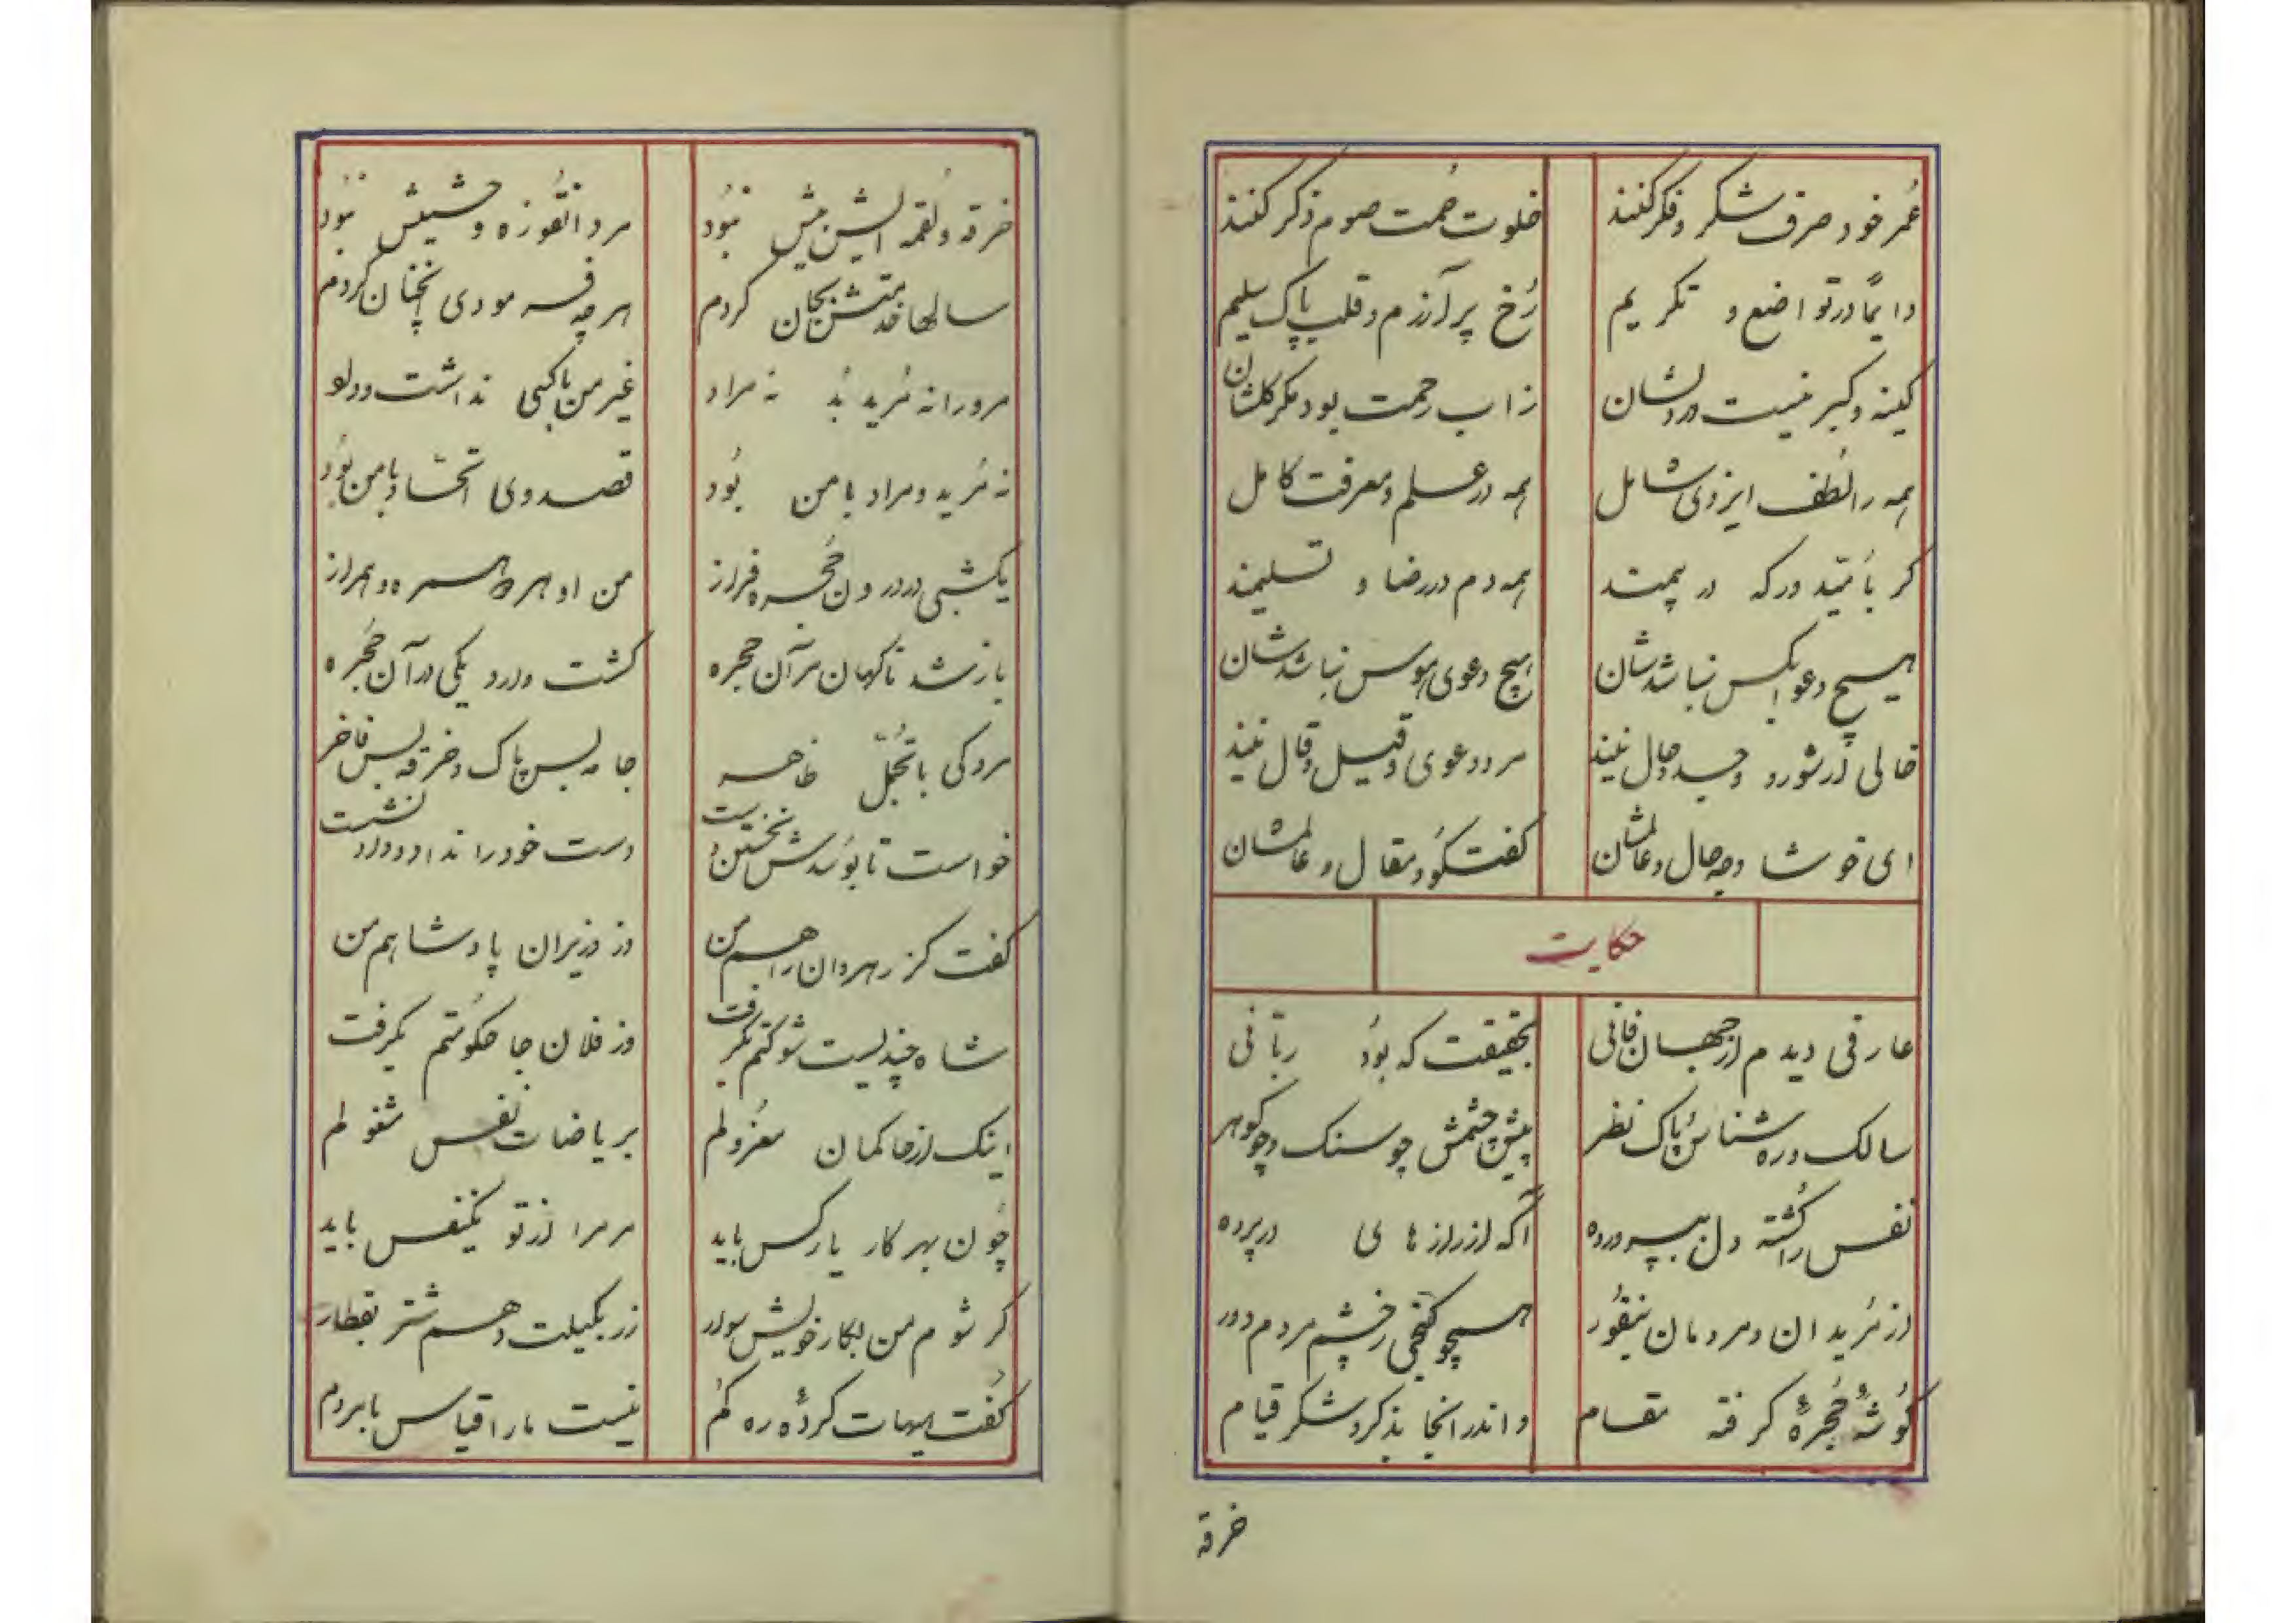 عمر خود صرف شکر و فکر کنند خلوت صمت صوم ذکر کنند
دایماً در تواضع و تکریم رخ پر آزرم و قلب پاک سلیم
کینه و کبر نیست در دلشان ز آب رحمت بود مکر کلشان
همه را لطف ایزدی شامل همه در علم و معرفت کامل
کر با درکه در همه دم در رضا و تسلیمند
هیچ دعوا بکس نباشدشان هیچ دعوی هوس نباشدشان
خالی از شور و وجد و حال نیند مرد دعوی و قیل و قال نیند
ای خوشا وجد حال و عالمشان کفتکو و مقال و عالمشان
حکایت
عارفی دیدم از جهان فانی بحقیقت که بود ربانی
سالک و ره شناس پاک نظر پیش چشمش چو سنک و چو کوهر
نفس را کشته دل بپرورده آکه از رازهای در پرده
از مریدان و مردمان بنفور همچو کنجی ز چشم مردم دور
کوشهٔ حجرهٔ کرفته مقام و اندر آنجا بذکر و شکر قیام
خرقه
خرقه و لقمه ایش بیش نبود مرد انفوزه و حشیش نبود
سالها خدمتش بجان کردم هر چه فرمودی آنچنان کردم
مرو را نه مرید بد نه مراد غیر من با کسی نداشت وداد
نه مرید و مراد با من بود قصد وی اتحاد با من بود
یکشبی در درون حجره فراز من او هر دو همسر و همراز
باز شد ناکهان در آن حجره کشت وارد یکی در آن حجره
مردکی با تجمل ظاهر جامه بس پاک و خرقه بس فاخر
خواست تا بوسدش نخستین دست دست خود را نداد و وارد نشست
کفت کز رهروان راهم من وز وزیران پادشاهم من
شاه چندیست شوکتم بکرفت وز فلان جا حکومتم بکرفت
اینک از حاکمان معزولم بریاضات نفس مشغولم
چون بهر کار یار کس باید مر مرا از تو یکنفس باید
کر شوم من بکار خویش سوار زر بکیلت دهم شتر بقطار
کفت هیهات کردهٔ ره کم نیست ما را قیاس با مردم